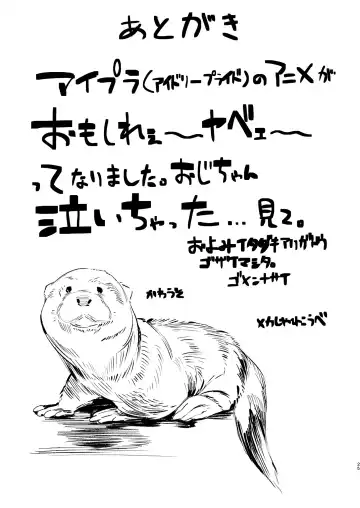 あとがき
アイプラ(アイドリープライド)のアニメが
おもしれぇ〜ヤベェ〜
ってなりました。おじちゃん
泣いちゃった…見て。
およみイタダキアリガトウ
ゴザイマシタ。
ゴメンナサイ
かわうそ
メカしゃれこうべ
25